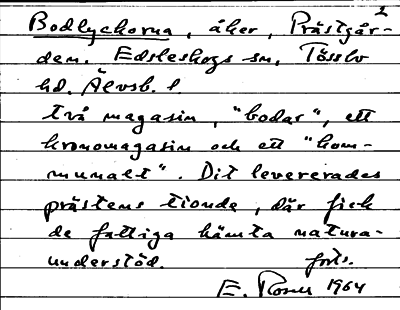 2
Bodlyckorna, åker, Prästgår-
den. Edsleskogs sn, Tössbo
hd. Älvsb. l
två magasin, "bodar", ett
kronomagasin och ett "kom-
munalt". Dit levererades
prästens tionde, där fick
de fattiga hämta natura-
understöd. forts.
E. Rosén 1964